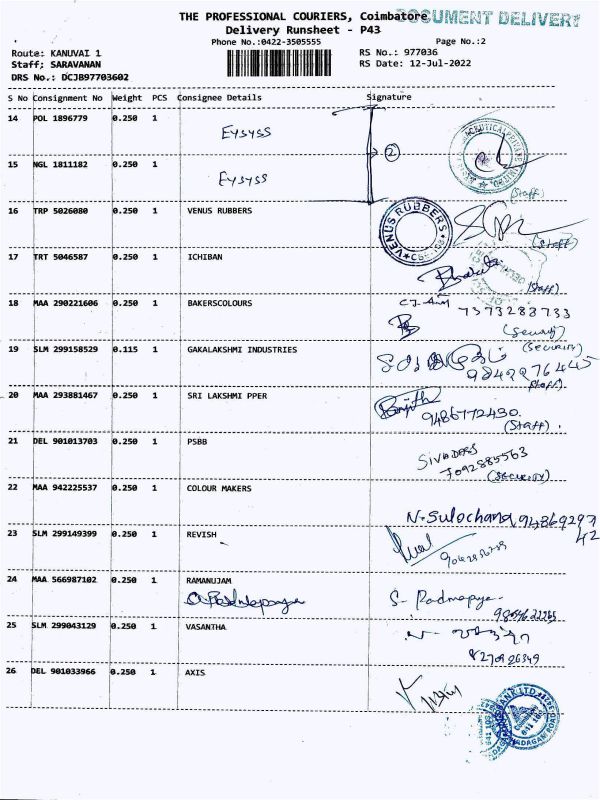 THE PROFESSIONAL COURIERS, Coimbatore
DOCUMENT DELIVERY
Delivery Runsheet - P43
Phone No.:0422-3505555
Page No.:2
Route: KANUVAI 1
RS No.: 977036
Staff; SARAVANAN
RS Date: 12-Jul-2022
DRS No.: DCJB97703602
S No Consignment No Weight PCS Consignee Details Signature
14 POL 1896779 0.250 1 Eysyss
2
15 NGL 1811182 0.250 1 Eysyss
(Staff)
16 TRP 5026080 0.250 1 VENUS RUBBERS
VENUS RUBBERS
(Staff)
17 TRT 5046587 0.250 1 ICHIBAN
(Staff)
18 MAA 290221606 0.250 1 BAKERSCOLOURS
7373283733
(Security)
19 SLM 299158529 0.115 1 GAKALAKSHMI INDUSTRIES
(Security)
9842276445
(Staff)
20 MAA 293881467 0.250 1 SRI LAKSHMI PPER
9486772430
(Staff)
21 DEL 901013703 0.250 1 PSBB
SIVADASS
7092885563
(Security)
22 MAA 942225537 0.250 1 COLOUR MAKERS
N. Sulochana 94869297
42
23 SLM 299149399 0.250 1 REVISH
24 MAA 566987102 0.250 1 RAMANUJAM
S. Padmapya
25 SLM 299043129 0.250 1 VASANTHA
8270926349
26 DEL 901033966 0.250 1 AXIS